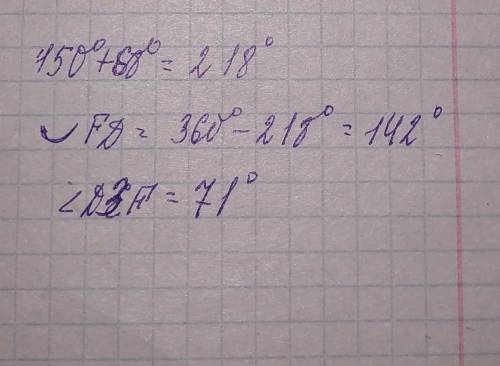 150° + 68° = 218°
◡ FD = 360° - 218° = 142°
∠DEF = 71°